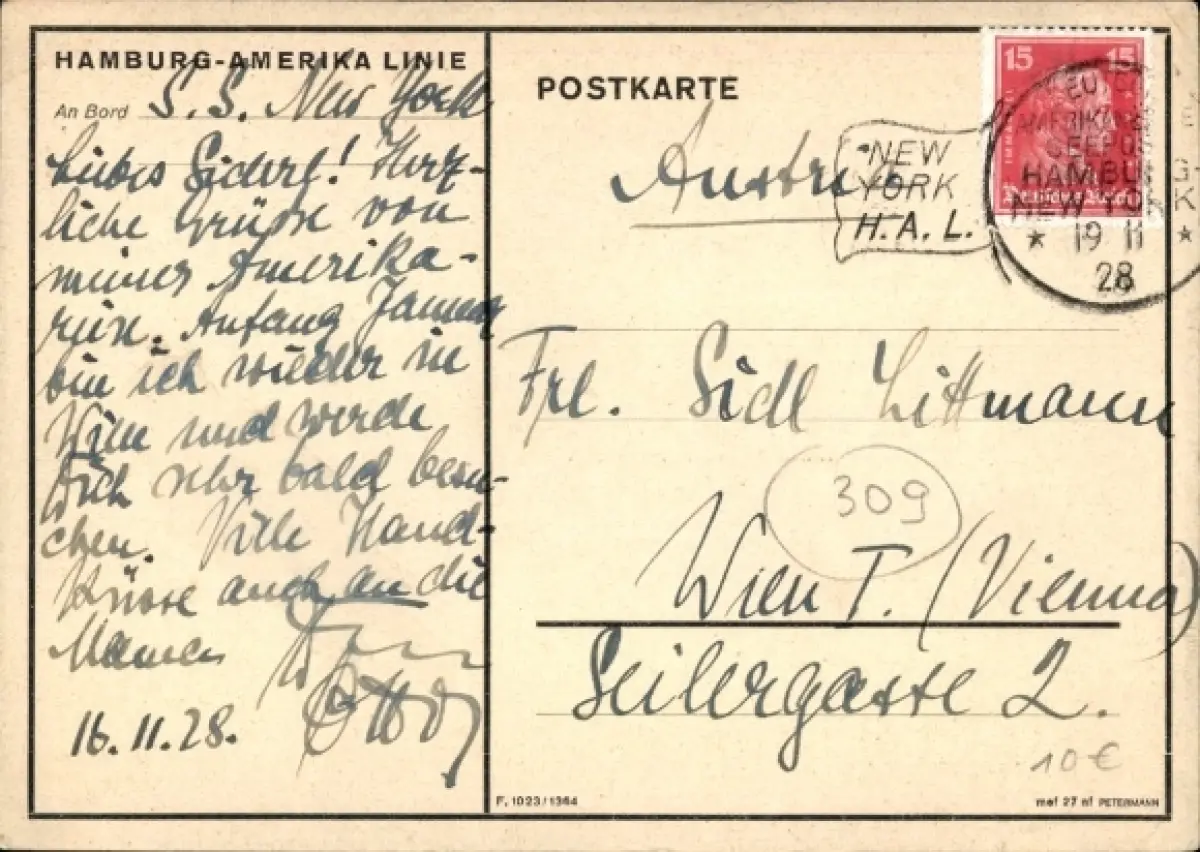 HAMBURG-AMERIKA LINIE
An Bord S. S. New York
Liebes Siderl! Herz-
liche Grüsse von
meiner Amerika-
reise. Anfang Januar
bin ich wieder in
Wien und werde
Dich sehr bald besu-
chen. Viele Hand-
küsse auch an die
Mama
Dein
Otto
16.11.28.
F. 1023/1364
POSTKARTE
Austria
NEW
YORK
H. A. L.
15 15
Deutsches Reich
HAMBURG-
NEW YORK
* 19 11 *
28
Frl. Sidl Littmann
309
Wien I. (Vienna)
Seilergasse 2.
10 €
mef 27 nf PETERMANN